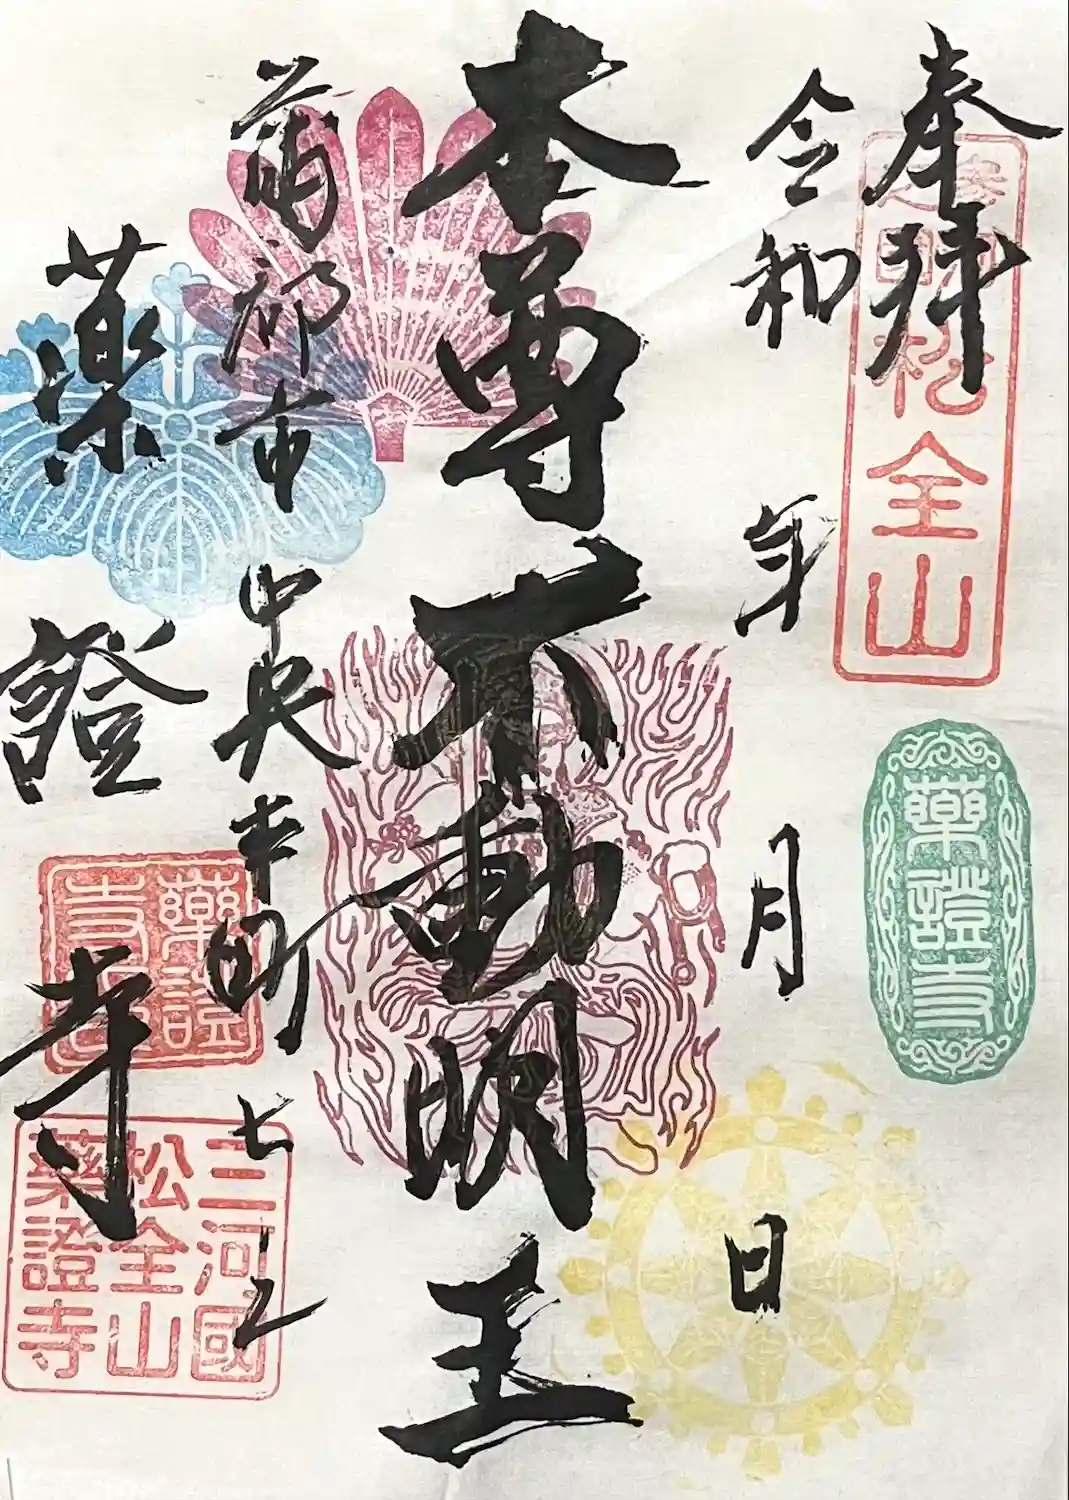 奉拝
松全山
藥證寺
令和 年 月 日
本尊 不動明王
蒲郡市 中央本町 七
薬證寺
藥証
寺
三河國
松全山
藥證寺